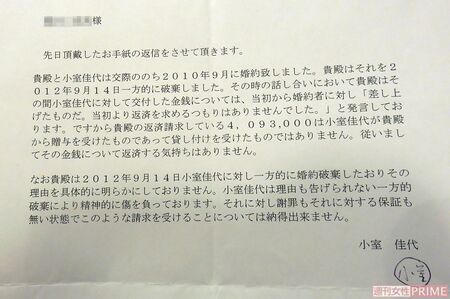 様
先日頂戴したお手紙の返信をさせて頂きます。
貴殿と小室佳代は交際ののち2010年9月に婚約致しました。貴殿はそれを2
012年9月14日一方的に破棄しました。その時の話し合いにおいて貴殿はそ
の間小室佳代に対して交付した金銭については、当初から婚約者に対し「差し上
げたものだ。当初より返済を求めるつもりはありませんでした。」と発言してお
ります。ですから貴殿の返済請求している4,093,000は小室佳代が貴殿
から贈与を受けたものであって貸し付けを受けたものではありません。従いまし
てその金銭について返済する気持ちはありません。
なお貴殿は2012年9月14日小室佳代に対し一方的に婚約破棄したおりその
理由を具体的に明らかにしておりません。小室佳代は理由も告げられない一方的
破棄により精神的に傷を負っております。それに対し謝罪もそれに対する保証も
無い状態でこのような請求を受けることについては納得出来ません。
小室 佳代
小室
週刊女性PRIME